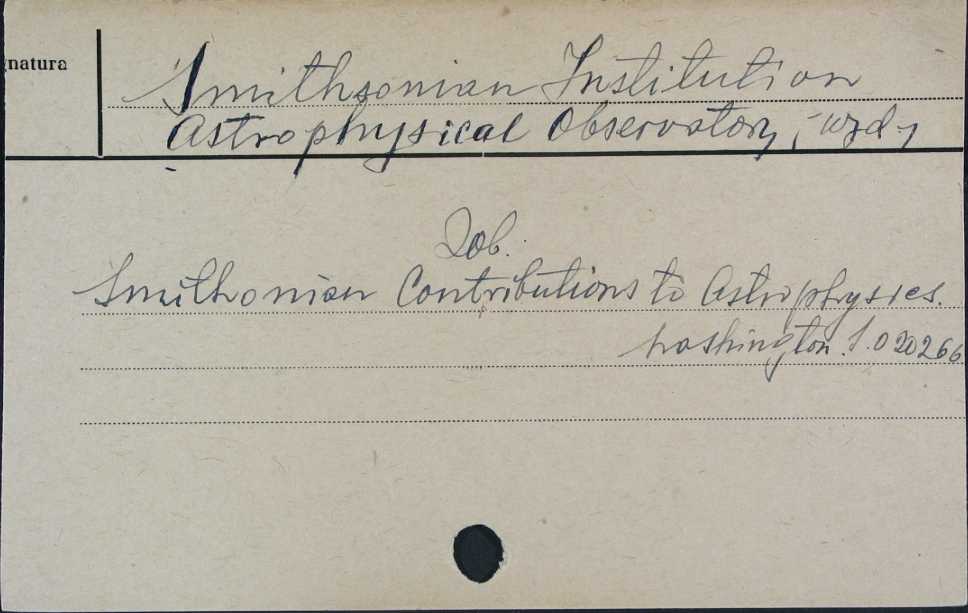 natura
Smithsonian Institution
Astrophysical Observatory, wyd.
Zob.
Smithonian Contributions to Astrophysics.
Washington. S. 020266